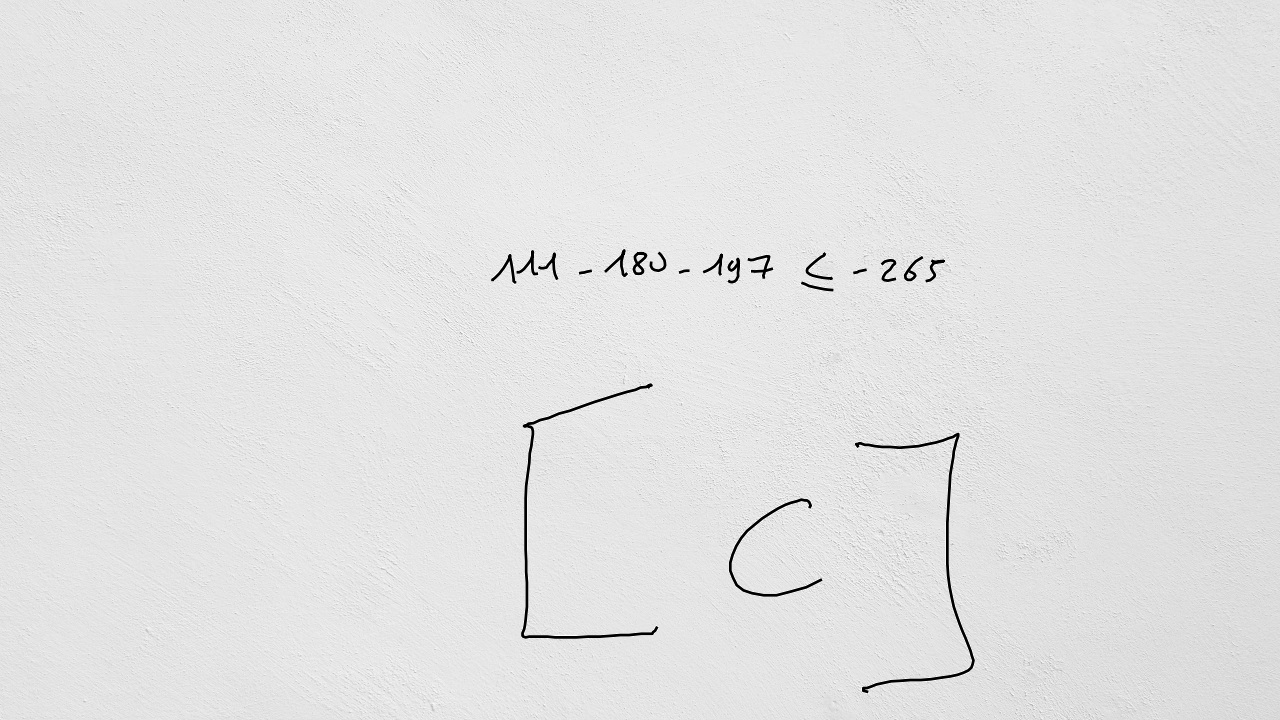 111 - 180 - 197 ≤ - 265
[ C ]